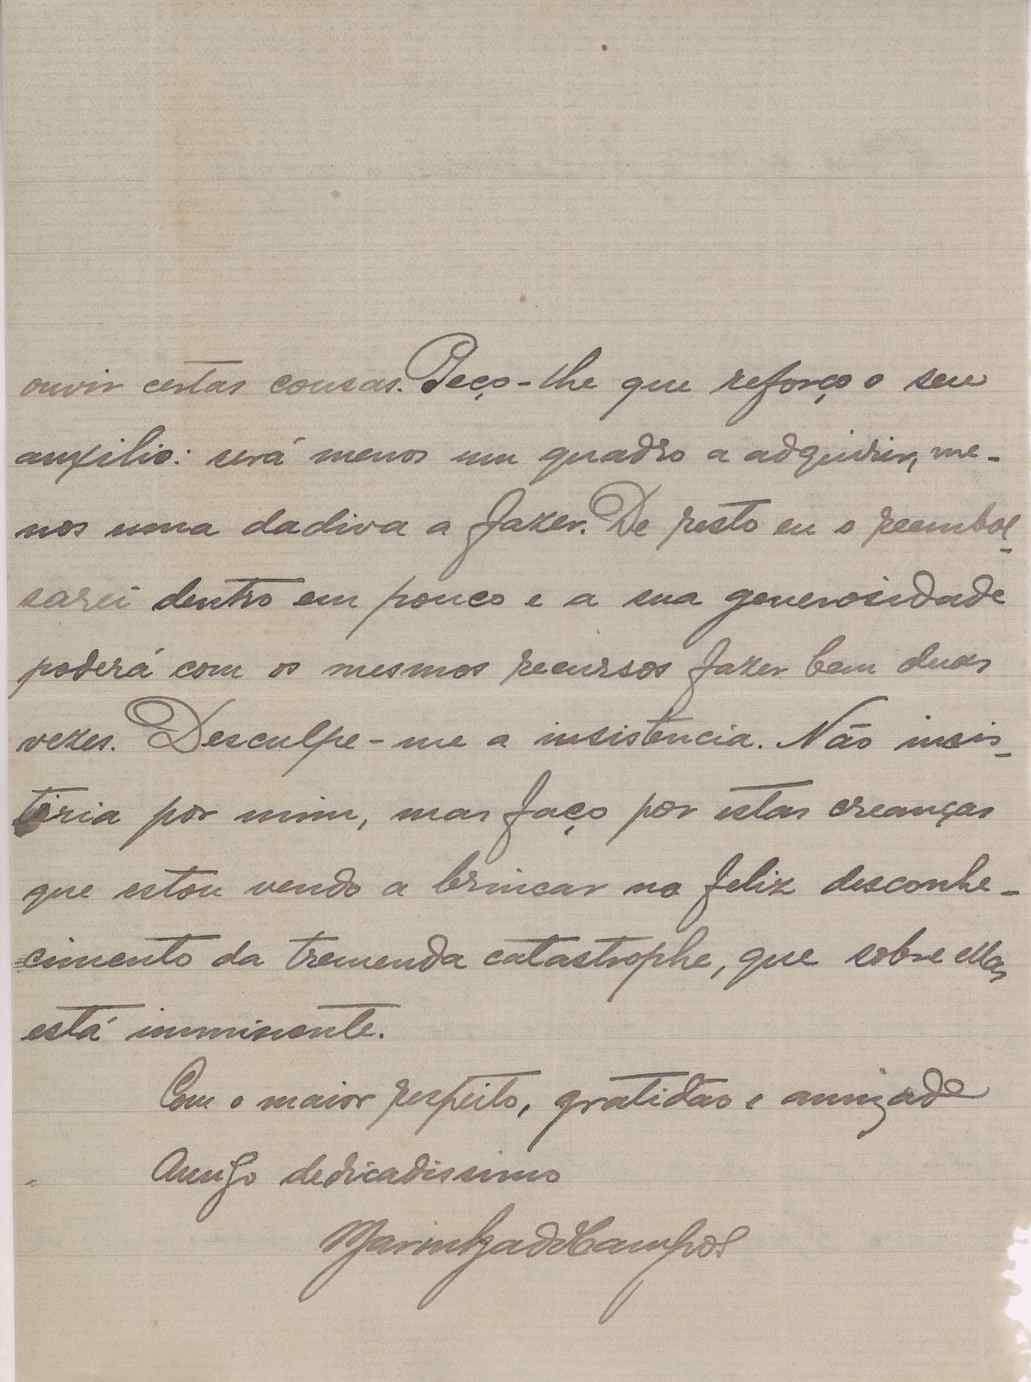 ouvir certas cousas. Peço-lhe que reforço o seu
auxilio: será menos um quadro a adquirir, me-
nos uma dadiva a fazer. De resto eu o reembol-
sarei dentro em pouco e a sua generosidade
poderá com os mesmos recursos fazer bem duas
vezes. Desculpe-me a insistencia. Não insis-
tiria por mim, mas faço por estas creanças
que estou vendo a brincar no feliz desconhe-
cimento da tremenda catastrophe, que sobre ellas
está imminente.
Com o maior respeito, gratidão e amizade
Amigo dedicadissimo
Marinho de Campos